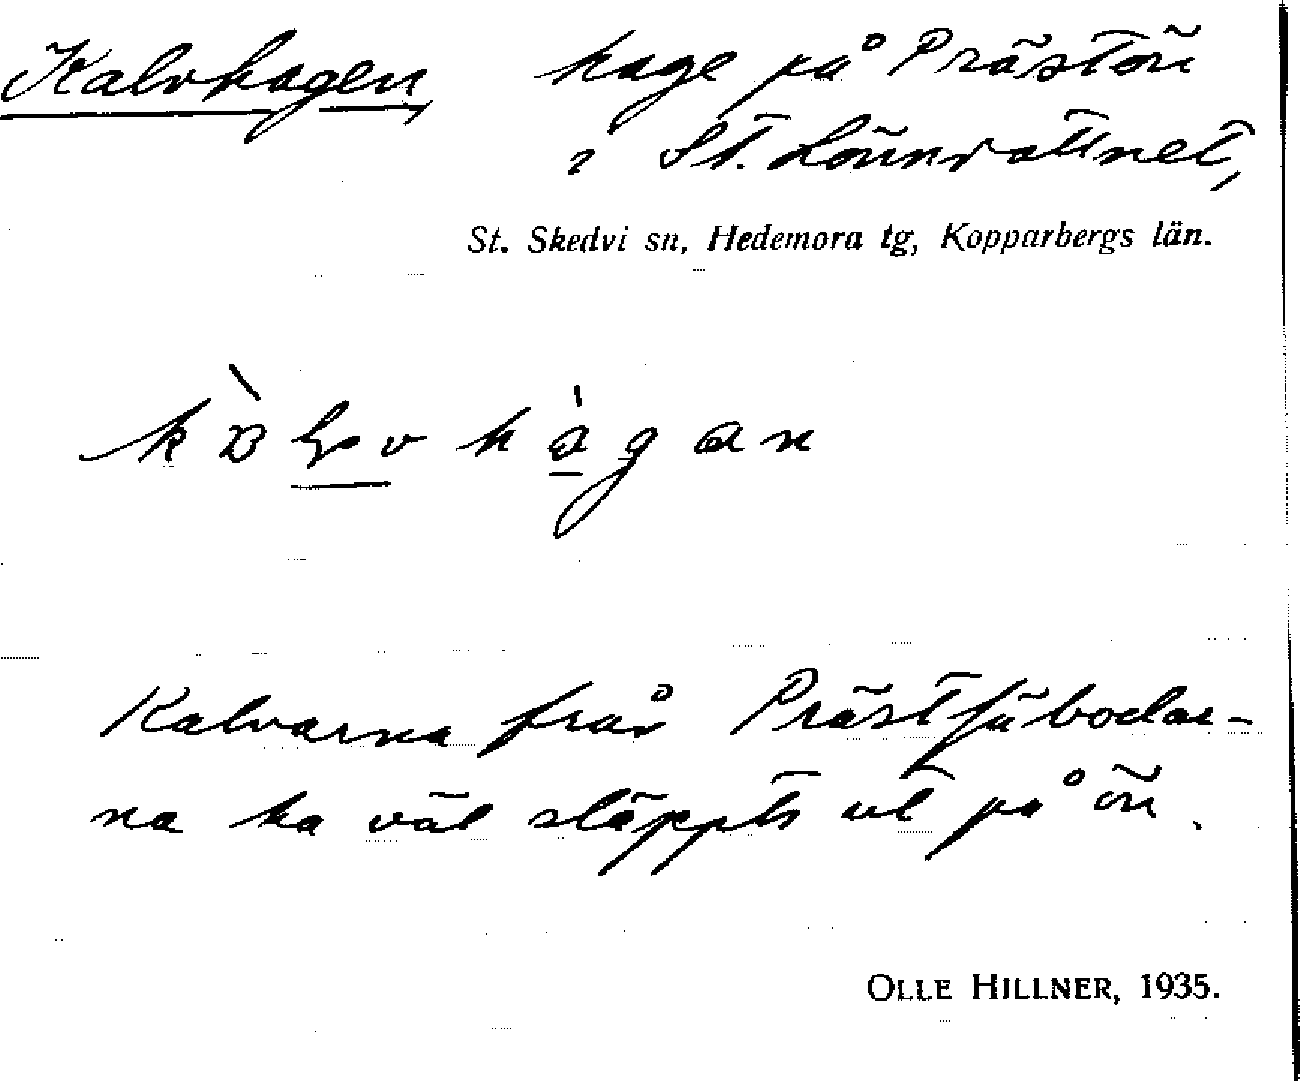 Kalvhagen, hage på Prästön
i St. Lönnvattnet,
St. Skedvi sn, Hedemora tg, Kopparbergs län.
Kalvarna från Prästfäbodar-
na ha väl släppts ut på ön.
OLLE HILLNER, 1935.